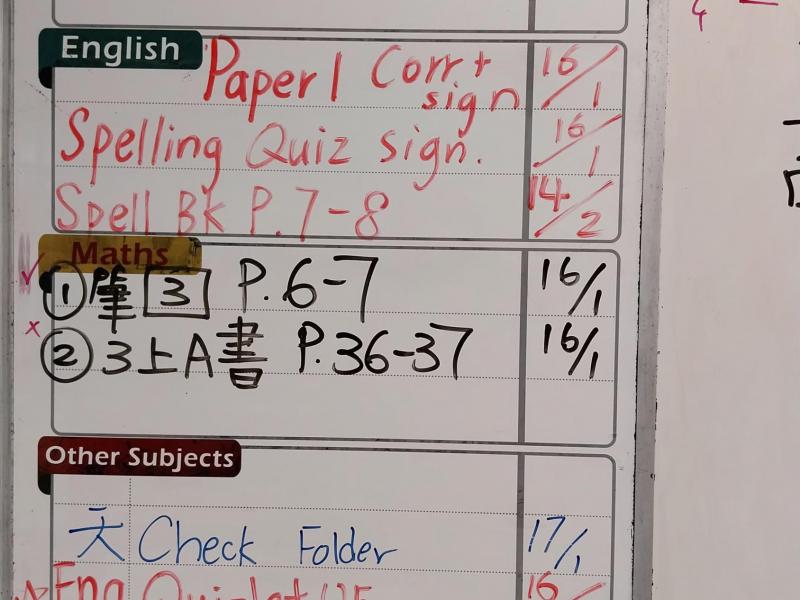 English
Paper 1 Corr + sign 16/1
Spelling Quiz sign. 16/1
Spell Bk P.7-8 14/2
Maths
① 3 P.6-7 16/1
② 3上A書 P.36-37 16/1
Other Subjects
天 Check Folder 17/1
Eng 16